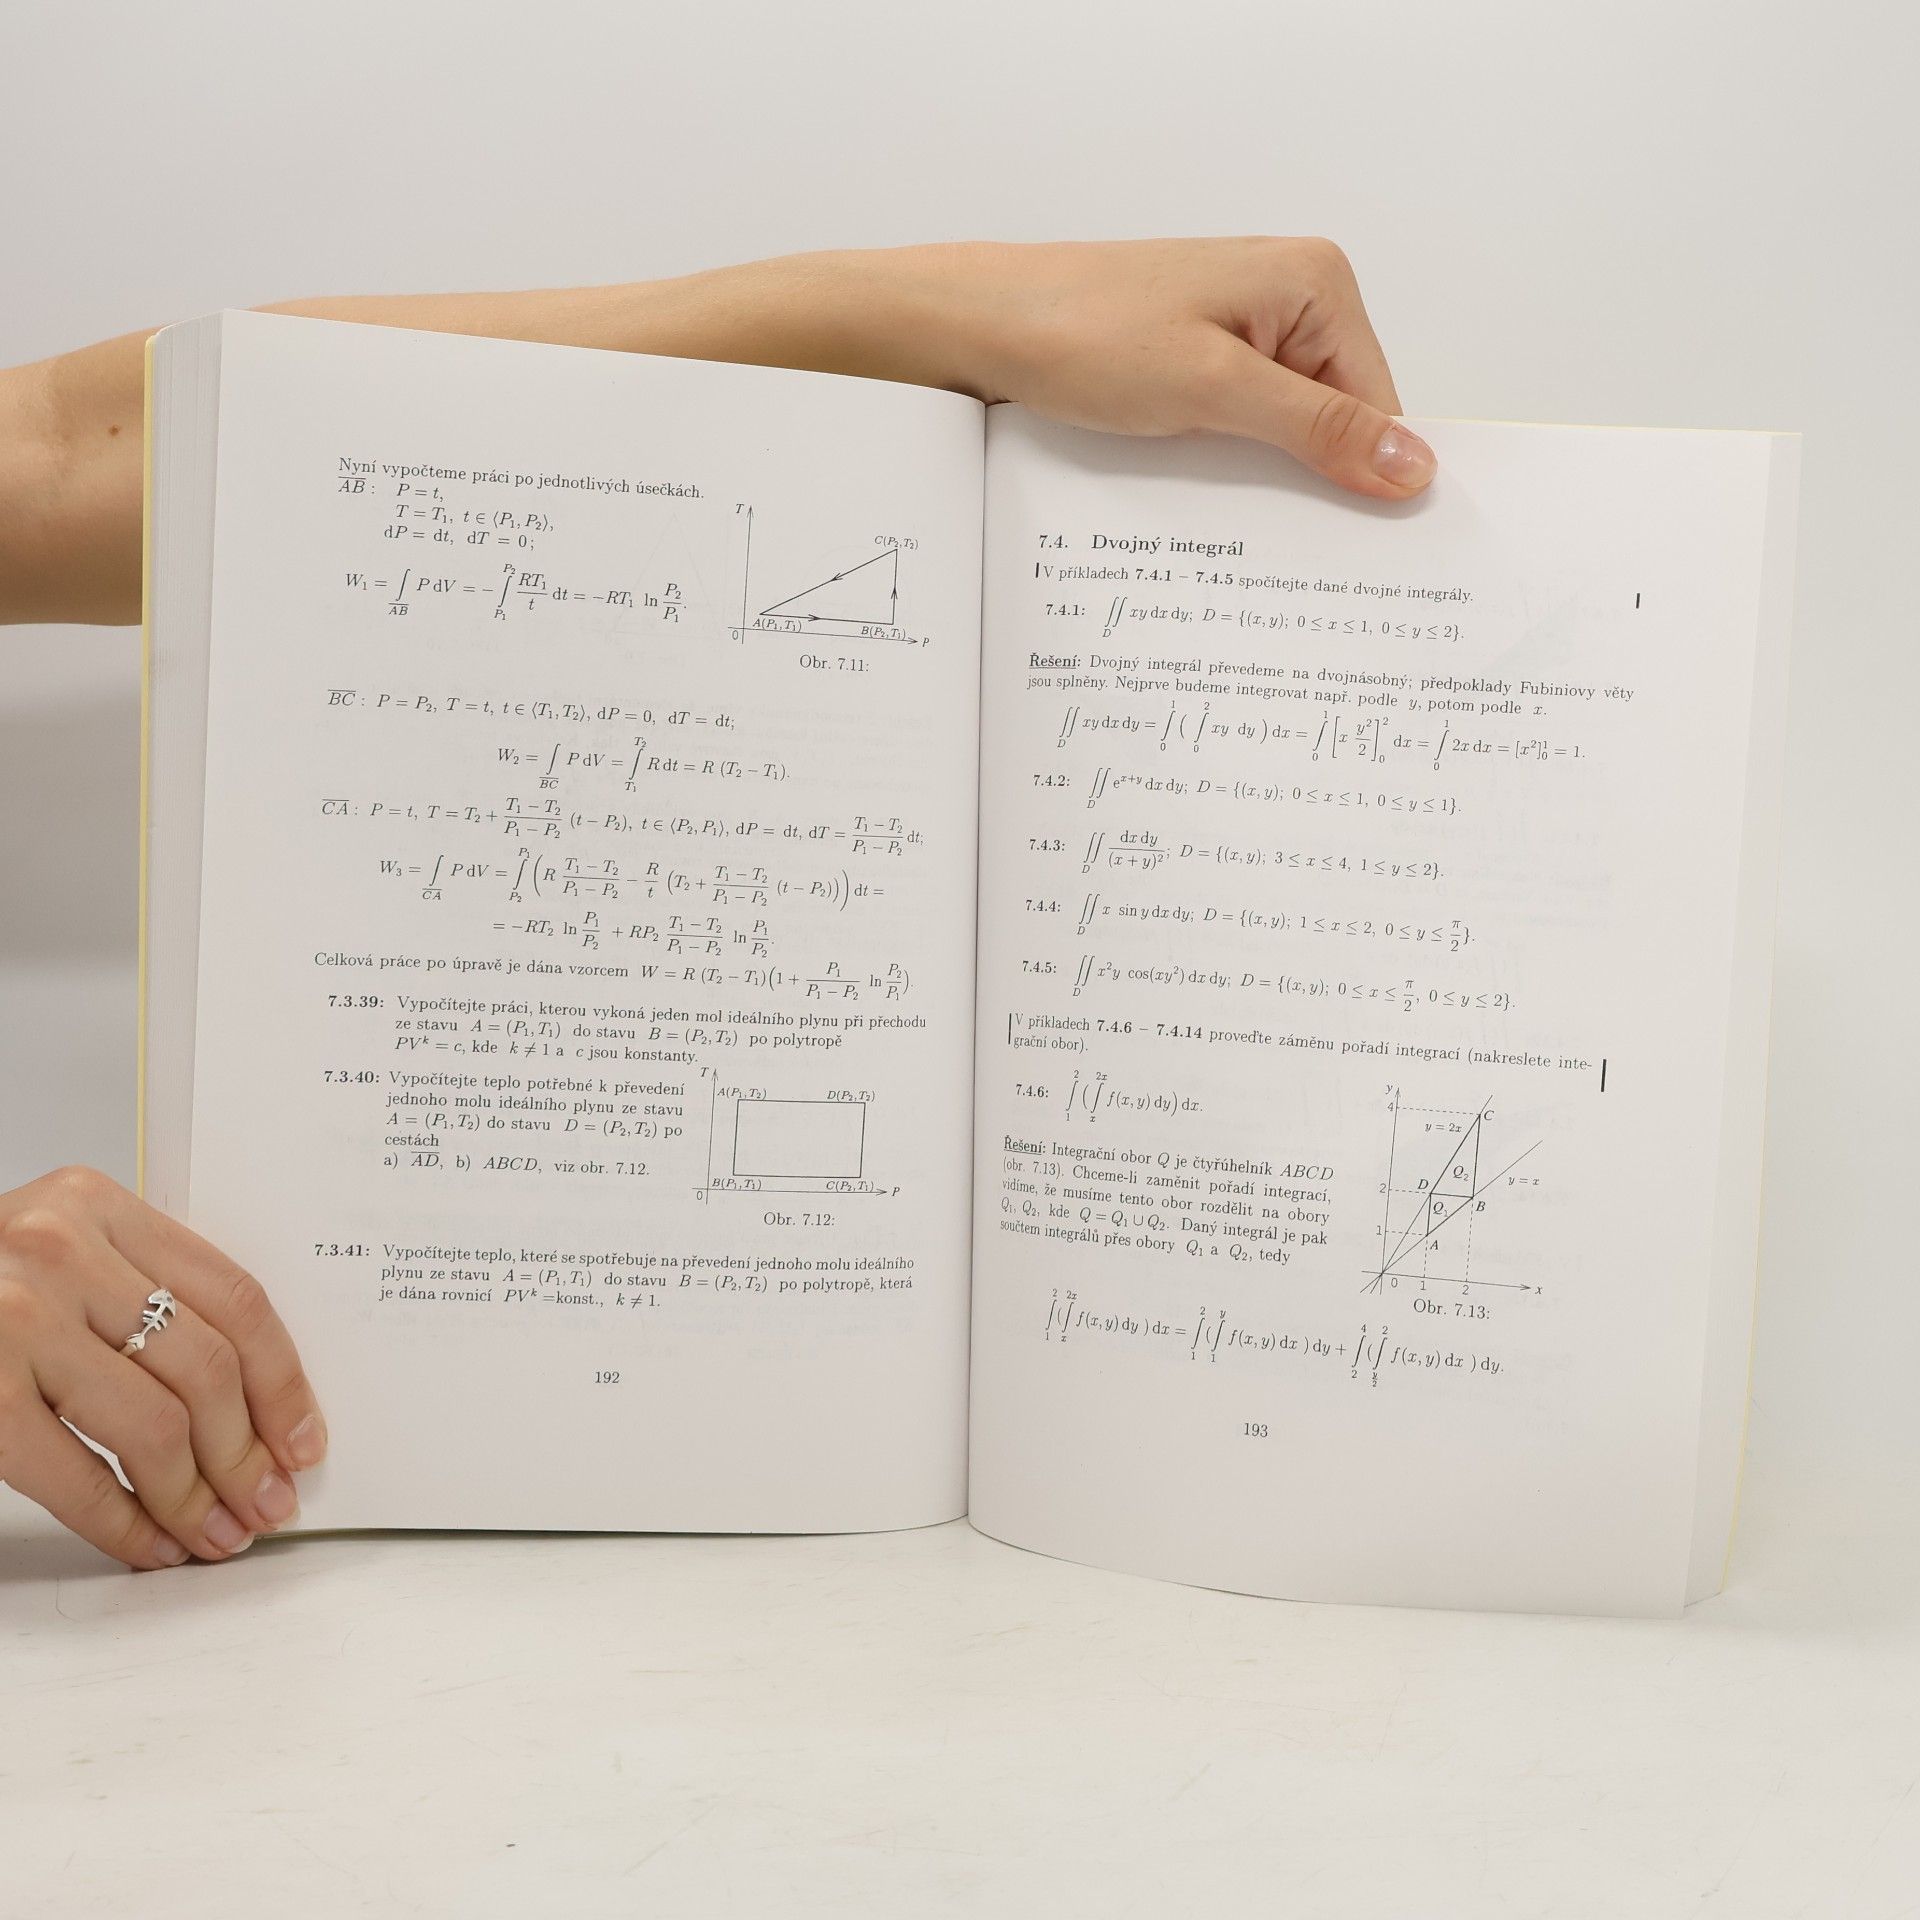 Nyní vypočteme práci po jednotlivých úsečkách.
AB : P = t,
T = T₁, t ∈ ⟨P₁, P₂⟩,
dP = dt, dT = 0;
W₁ = ∫_{AB} P dV = − ∫_{P₁}^{P₂} RT₁/t dt = −RT₁ ln P₂/P₁.
T
C(P₂, T₂)
A(P₁, T₁)
B(P₂, T₁)
0
P
Obr. 7.11:
BC : P = P₂, T = t, t ∈ ⟨T₁, T₂⟩, dP = 0, dT = dt;
W₂ = ∫_{BC} P dV = ∫_{T₁}^{T₂} R dt = R (T₂ − T₁).
CA : P = t, T = T₂ + (T₁ − T₂)/(P₁ − P₂) (t − P₂), t ∈ ⟨P₂, P₁⟩, dP = dt, dT = (T₁ − T₂)/(P₁ − P₂) dt;
W₃ = ∫_{CA} P dV = ∫_{P₂}^{P₁} (R (T₁ − T₂)/(P₁ − P₂) − R/t (T₂ + (T₁ − T₂)/(P₁ − P₂) (t − P₂))) dt =
= −RT₂ ln P₁/P₂ + RP₂ (T₁ − T₂)/(P₁ − P₂) ln P₁/P₂.
Celková práce po úpravě je dána vzorcem W = R (T₂ − T₁)(1 + P₁/(P₁ − P₂) ln P₂/P₁).
7.3.39: Vypočítejte práci, kterou vykoná jeden mol ideálního plynu při přechodu
ze stavu A = (P₁, T₁) do stavu B = (P₂, T₂) po polytropě
PVᵏ = c, kde k ≠ 1 a c jsou konstanty.
7.3.40: Vypočítejte teplo potřebné k převedení
jednoho molu ideálního plynu ze stavu
A = (P₁, T₂) do stavu D = (P₂, T₂) po
cestách
a) AD, b) ABCD, viz obr. 7.12.
T
A(P₁, T₂)
D(P₂, T₂)
B(P₁, T₁)
C(P₂, T₁)
0
P
Obr. 7.12:
7.3.41: Vypočítejte teplo, které se spotřebuje na převedení jednoho molu ideálního
plynu ze stavu A = (P₁, T₁) do stavu B = (P₂, T₂) po polytropě, která
je dána rovnicí PVᵏ =konst., k ≠ 1.
192
7.4. Dvojný integrál
V příkladech 7.4.1 – 7.4.5 spočítejte dané dvojné integrály.
7.4.1: ∬_D xy dx dy; D = {(x, y); 0 ≤ x ≤ 1, 0 ≤ y ≤ 2}.
Řešení: Dvojný integrál převedeme na dvojnásobný; předpoklady Fubiniovy věty
jsou splněny. Nejprve budeme integrovat např. podle y, potom podle x.
∬_D xy dx dy = ∫_0^1 ( ∫_0^2 xy dy ) dx = ∫_0^1 [x y²/2]_0^2 dx = ∫_0^1 2x dx = [x²]_0^1 = 1.
7.4.2: ∬_D e^{x+y} dx dy; D = {(x, y); 0 ≤ x ≤ 1, 0 ≤ y ≤ 1}.
7.4.3: ∬_D dx dy/(x + y)²; D = {(x, y); 3 ≤ x ≤ 4, 1 ≤ y ≤ 2}.
7.4.4: ∬_D x sin y dx dy; D = {(x, y); 1 ≤ x ≤ 2, 0 ≤ y ≤ π/2}.
7.4.5: ∬_D x²y cos(xy²) dx dy; D = {(x, y); 0 ≤ x ≤ π/2, 0 ≤ y ≤ 2}.
V příkladech 7.4.6 – 7.4.14 proveďte záměnu pořadí integrací (nakreslete inte-
grační obor).
7.4.6: ∫_1^2 ( ∫_x^{2x} f(x, y) dy) dx.
Řešení: Integrační obor Q je čtyřúhelník ABCD
(obr. 7.13). Chceme-li zaměnit pořadí integrací,
vidíme, že musíme tento obor rozdělit na obory
Q₁, Q₂, kde Q = Q₁ ∪ Q₂. Daný integrál je pak
součtem integrálů přes obory Q₁ a Q₂, tedy
y
4
C
y = 2x
Q₂
D
y = x
2
Q₁
B
1
A
0
1
2
x
Obr. 7.13:
∫_1^2 ( ∫_x^{2x} f(x, y) dy ) dx = ∫_1^2 ( ∫_1^y f(x, y) dx ) dy + ∫_2^4 ( ∫_{y/2}^2 f(x, y) dx ) dy.
193